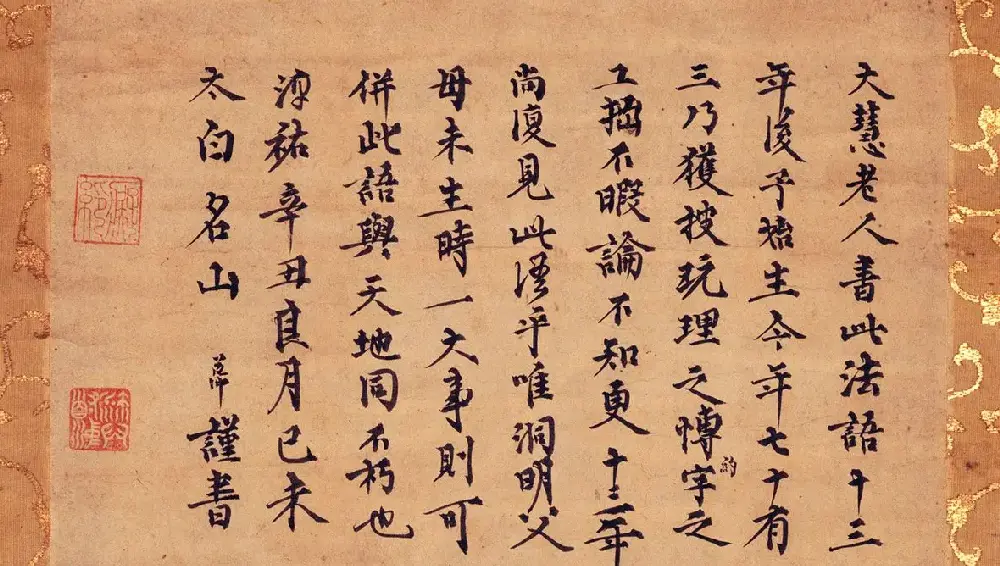 大慧老人書此法語十三
年後予始生今年七十有
三乃獲披玩理之愽約字之
工拙不暇論不知更十三年
尚復見此語乎唯洞明父
母未生時一大事則可
併此語與天地同不朽也
淳祐辛丑良月己未
太白名山 謹書